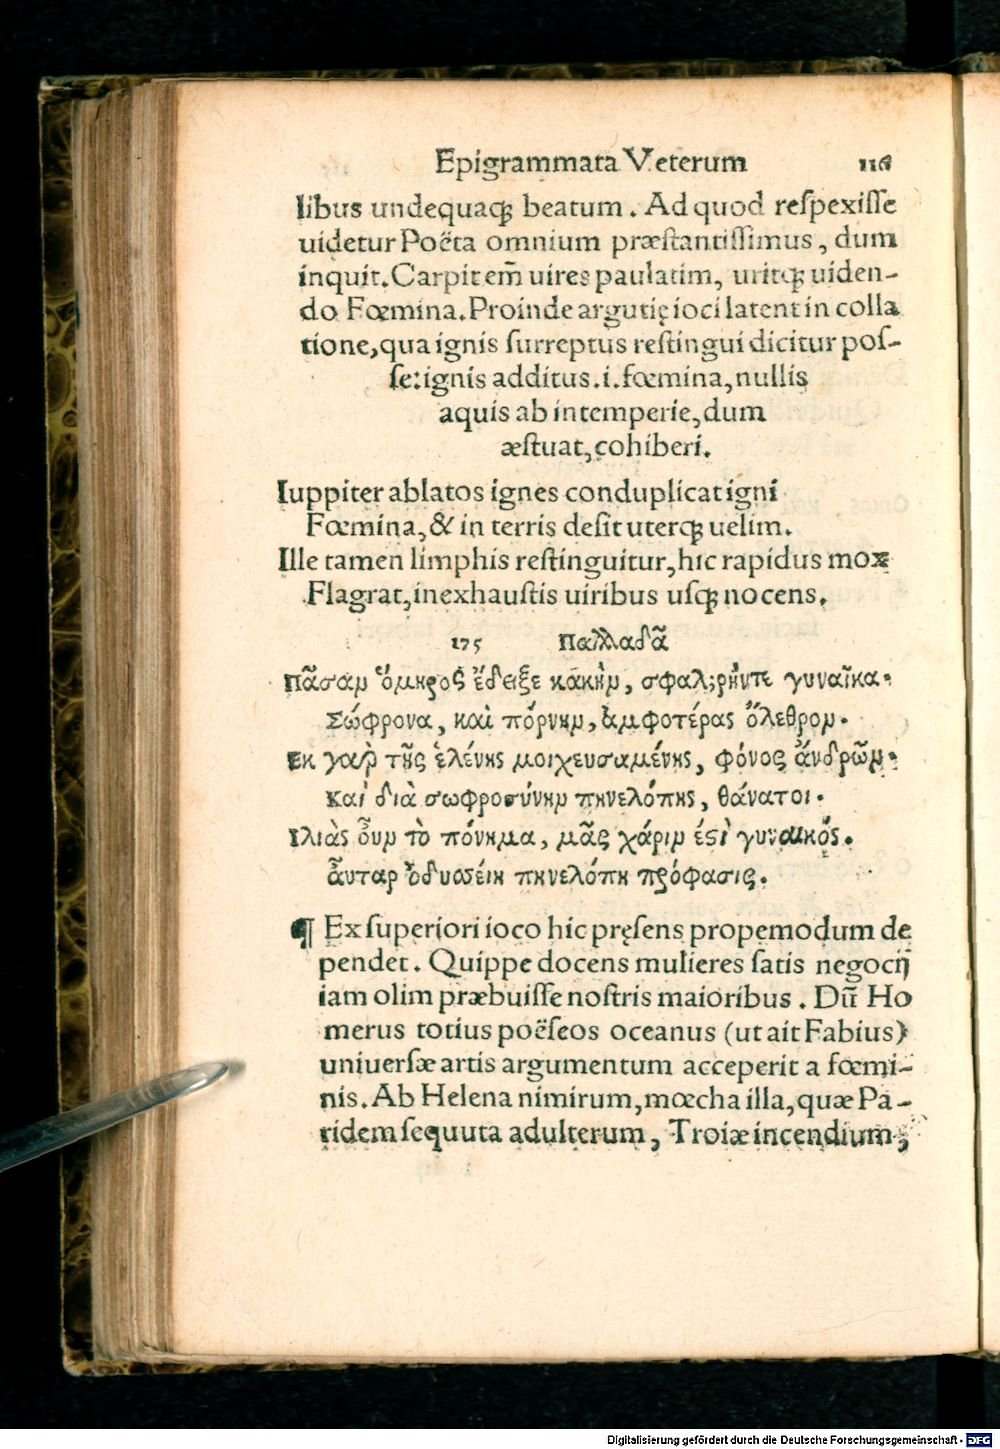 Epigrammata Veterum 116
libus undequaqꝫ beatum. Ad quod respexisse
uidetur Poëta omnium præstantissimus, dum
inquit. Carpit em̃ uires paulatim, uritqꝫ uiden-
do Fœmina. Proinde argutię ioci latent in colla
tione, qua ignis surreptus restingui dicitur pos-
se: ignis additus .i. fœmina, nullis
aquis ab intemperie, dum
æstuat, cohiberi.
Iuppiter ablatos ignes conduplicat igni
Fœmina, & in terris desit uterqꝫ uelim.
Ille tamen limphis restinguitur, hic rapidus mox
Flagrat, inexhaustis uiribus usqꝫ nocens.
175 Παλλαδᾶ
Πᾶσαμ ὅμηρος ἔδειξε κακὴμ, σφαλ;ρήντε γυναῖκα.
Σώφρονα, καὶ πόρνημ, ἀμφοτέρας ὄλεθρομ.
Εκ γαρ τῆς ἑλένης μοιχευσαμένης, φόνος ἄνδρῶμ.
Καὶ διὰ σωφροσύνημ πηνελόπης, θάνατοι.
Ιλιὰς οὖμ τὸ πόνημα, μᾶς χάριμ ἐστὶ γυναικός.
ἆυταρ ὀδυσσέιη πηνελόπη πρόφασις.
¶ Ex superiori ioco hic pręsens propemodum de
pendet. Quippe docens mulieres satis negocij
iam olim præbuisse nostris maioribus. Dũ Ho
merus totius poëseos oceanus (ut ait Fabius)
uniuersæ artis argumentum acceperit a fœmi-
nis. Ab Helena nimirum, mœcha illa, quæ Pa-
ridem sequuta adulterum, Troiæ incendium,
Digitalisierung gefördert durch die Deutsche Forschungsgemeinschaft - DFG